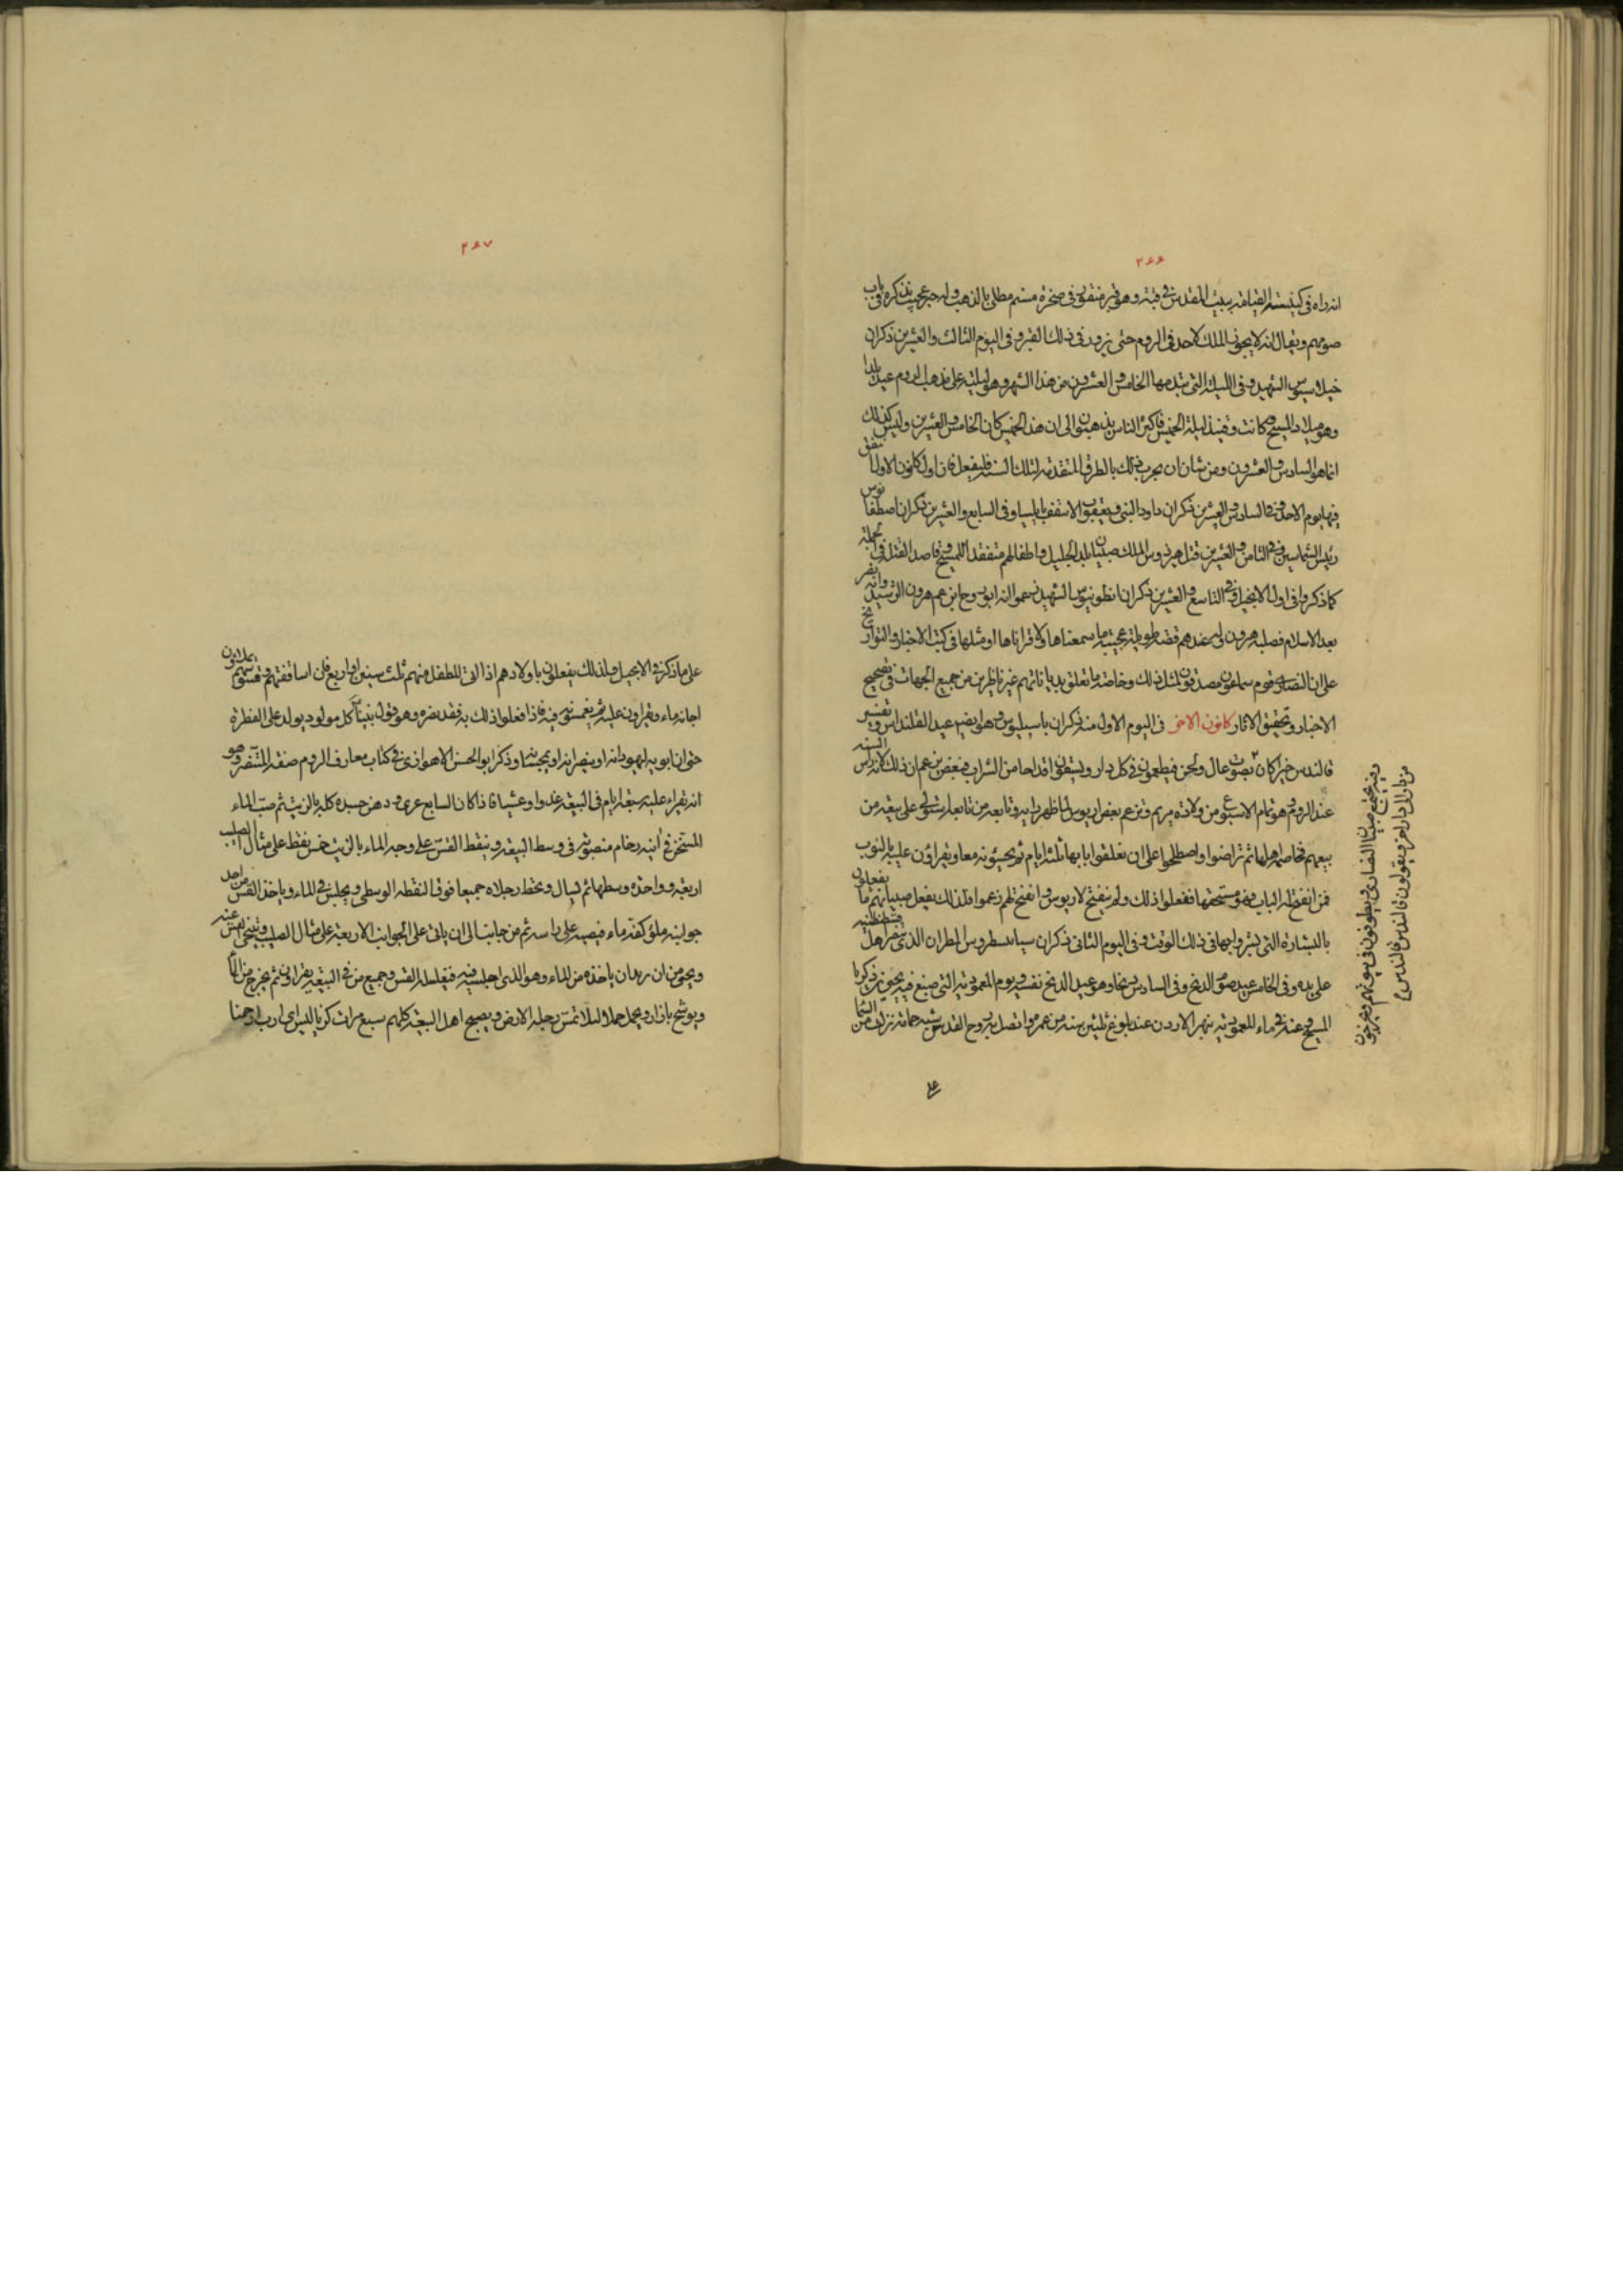 ٢٦٦
انه راه فى كنيسة القيامة ببيت المقدس فى قبة وهو قبر منقور فى صخرة مسنم مطلى بالذهب وله خبر عجيب نذكره فى باب
صومهم ويقال انه لا يجوز الملك لاحد فى الروم حتى يزور ذلك القبر وفى اليوم الثالث والعشرين ذكران
الشهيد وفى الليلة التى يتقدمها الخامس والعشرون من هذا الشهر وهو ليلته على مذهب الروم عيد يلدا
وهو ميلاد المسيح وكانت وقتئذ ليلة الخميس فاكثر الناس يذهبون الى ان هذا الخميس كان الخامس والعشرين وليس كذلك
انما هو السادس والعشرون ومن شاء ان يجرب ذلك بالطرق المتقدمة لتلك السنة فليفعل فان اول كانون الاول يتفق
فيها يوم الاحد وفى السادس والعشرين ذكران داود النبى ويعقوب الاسقف بايليا وفى السابع والعشرين ذكران اصطفانوس
رئيس الشماسين وفى الثامن والعشرين قتل هيرذوس الملك صبيان بلد الجليل واطفالهم متفقدا للمسيح وقاصدا لقتله فى جملته
كما ذكروا فى اول الانجيل وفى التاسع والعشرين ذكران انطونيوس الشهيد زعموا انه ابو روح ابن عم هرون الرشيد وانه تنصر
بعد الاسلام فصلبه هرون وله عندهم قصة طويلة عجيبة ما سمعناها ولا قراناها او مثلها فى كتب الاخبار والتواريخ
على ان النصارى قوم سماعون مصدقون لمثل ذلك وخاصة ما تعلق بدياناتهم غير ناظرين من جميع الجهات فى تصحيح
الاخبار وتحقيق الاثار كانون الاخر فى اليوم الاول منه ذكران باسيليوس وهو ايضا عيد القلنداس وتفسير
قالندس خيرا كان بصوت عال ولحن فيطعمون فى كل دار ويسقون اقداحا من الشراب فبعض يزعم ان ذلك لانه راس السنة
عند الروم وهو تمام الاسبوع من ولادة مريم ويزعم بعض ان اريوس لما ظهر رايه وتابعه من تابعه استولى على بيعة من
بيعهم فخاصمه اهلها ثم تراضوا واصطلحوا على ان يغلقوا بابها ثلثة ايام ثم يجيئونه معا ويقراون عليه بالنوب
فمن انفتح له الباب فهو مستحقها ففعلوا ذلك ولم ينفتح لاريوس وانفتح لهم زعموا فلذلك يفعل صبيانهم ما يفعلون
بالبشارة التى بشروا بها فى ذلك الوقت وفى اليوم الثانى ذكران سيلبسطروس المطران الذى تنصر اهل قسطنطينية
على يده وفى الخامس عيد صوم الدنح وفى السادس دنحا وهو عيد الدنح نفسه يوم المعمودية التى صبغ فيه يحيى بن زكريا
المسيح وغمسه فى ماء المعمودية بنهر الاردن عند بلوغ ثلثين سنة من عمره واتصل به روح القدس شبه حمامة نزلت من السماء
وفيه يجتمع صبيان النصارى ويطوفون فى بيوتهم ويخرجون
من دار الى دار اخرى ويقولون قالندس قالندس
على
٢٦٧
على ما ذكر فى الانجيل ولذلك يفعلون باولادهم اذا اتى للطفل منهم ثلث سنين او اربع فان اساقفتهم وقسوسهم يملاون
اجانة ماء ويقراون عليه ثم يغمسونه فيه فاذا فعلوا ذلك به فقد نصره وهو قول نبينا كل مولود يولد على الفطرة
حتى ان ابويه ليهودانه او ينصرانه او يمجسانه وذكر ابو الحسن الاهوازى فى كتاب معارف الروم صفة التنصر وهو
انه يقراء عليه سبعة ايام فى البيعة غدوا وعشيا فاذا كان السابع عرى ودهن جسده كله بالزيت ثم صب الماء
المسخن فى انية رخام منصوبة فى وسط البيعة وينقط القس على وجه الماء بالزيت خمس نقط على مثال الصليب
اربعة وواحدة وسطها ثم يشال ويحط رجلاه جميعا فوق النقطة الوسطى ويجلس فى الماء وياخذ القس من احد
جوانبه ملؤ كفه ماء فيصبه على راسه ثم من جانب الى ان ياتى على الجوانب الاربعة على مثال الصليب ويتنحى القس عنه
ويجئ من اراد ان ياخذه من الماء وهو الذى اجلسه فيه فيغسله القس وجميع من فى البيعة يقراون ثم يخرج من الماء
ويوشح بازار ويحمل حملا لئلا تمس رجله الارض ويصيح اهل البيعة كلهم سبع مرات كرياليسون اى يا رب ارحمنا